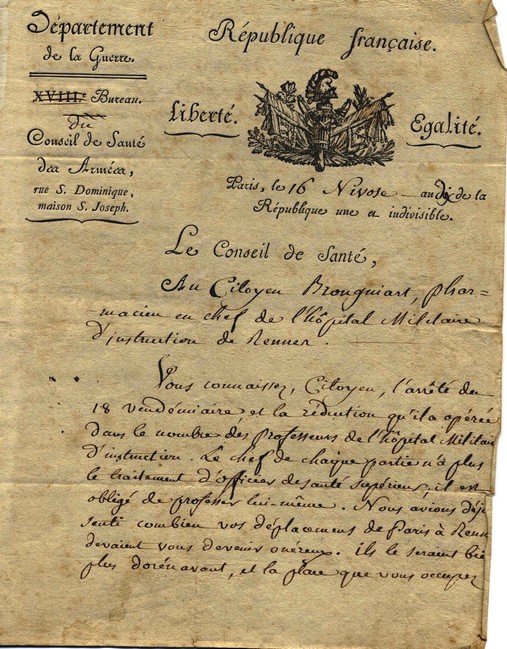 Département
de la Guerre.
XVIII. Bureau.
du
Conseil de Santé
des Armées,
rue S. Dominique,
maison S. Joseph.
République française.
Liberté.
Egalité.
Paris, le 16 Nivose au dix de la
République une et indivisible.
Le Conseil de Santé,
Au Citoyen Brongniart, phar=
macien en chef de l'hôpital Militaire
d'instruction de Rennes.
Vous connaissez, Citoyen, l'arrêté du
18 vendémiaire et la réduction qu'il a opérée
dans le nombre des professeurs de l'hôpital Militai
d'instruction. Le chef de chaque partie n'a plus
le traitement d'officier de santé supérieur; il est
obligé de professer lui-même. Nous avions déjà
senti combien vos déplacemens de Paris à Renn
devaient vous devenir onéreux. ils le seraient bie
plus dorénavant, et la place que vous occupez